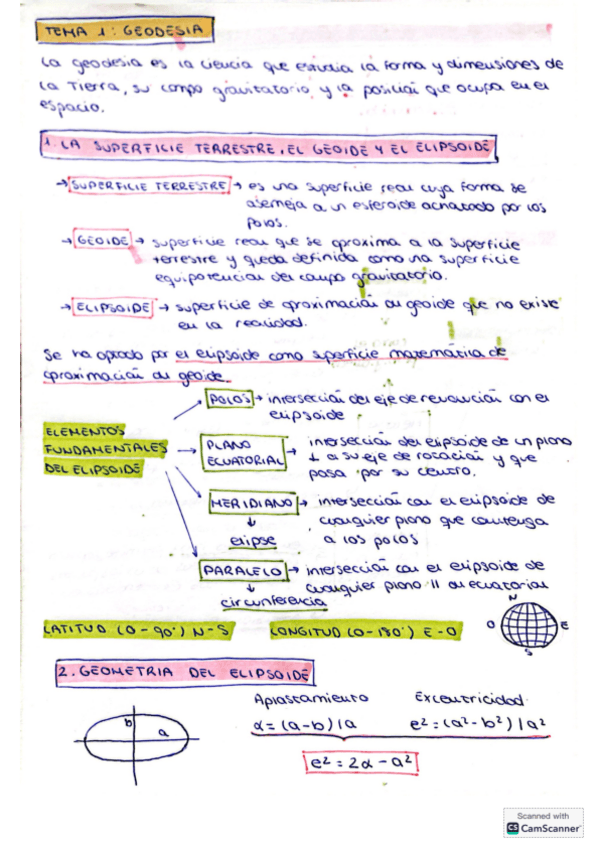 TEMA 1: GEODESIA
La geodesia es la ciencia que estudia la forma y dimensiones de
la Tierra, su campo gravitatorio y la posición que ocupa en el
espacio.
1. LA SUPERFICIE TERRESTRE, EL GEOIDE Y EL ELIPSOIDE
→ SUPERFICIE TERRESTRE → es una superficie real cuya forma se
asemeja a un esferoide achatado por los
polos.
→ GEOIDE → superficie real que se aproxima a la superficie
terrestre y queda definida como una superficie
equipotencial del campo gravitatorio.
→ ELIPSOIDE → superficie de aproximación al geoide que no existe
en la realidad.
Se ha optado por el elipsoide como superficie matemática de
aproximación al geoide.
POLOS → intersección del eje de revolución con el
elipsoide
ELEMENTOS
FUNDAMENTALES
DEL ELIPSOIDE
PLANO
ECUATORIAL → intersección del elipsoide de un plano
⊥ a su eje de rotación y que
pasa por su centro.
MERIDIANO → intersección con el elipsoide de
cualquier plano que contenga
a los polos
elipse
PARALELO → intersección con el elipsoide de
cualquier plano || al ecuatorial
circunferencia
LATITUD (0-90°) N-S LONGITUD (0-180°) E-O
N
O E
S
2. GEOMETRIA DEL ELIPSOIDE
Aplastamiento Excentricidad
α = (a-b)/a e² = (a²-b²)/a²
b
a
e² = 2α - α²
Scanned with
CS CamScanner